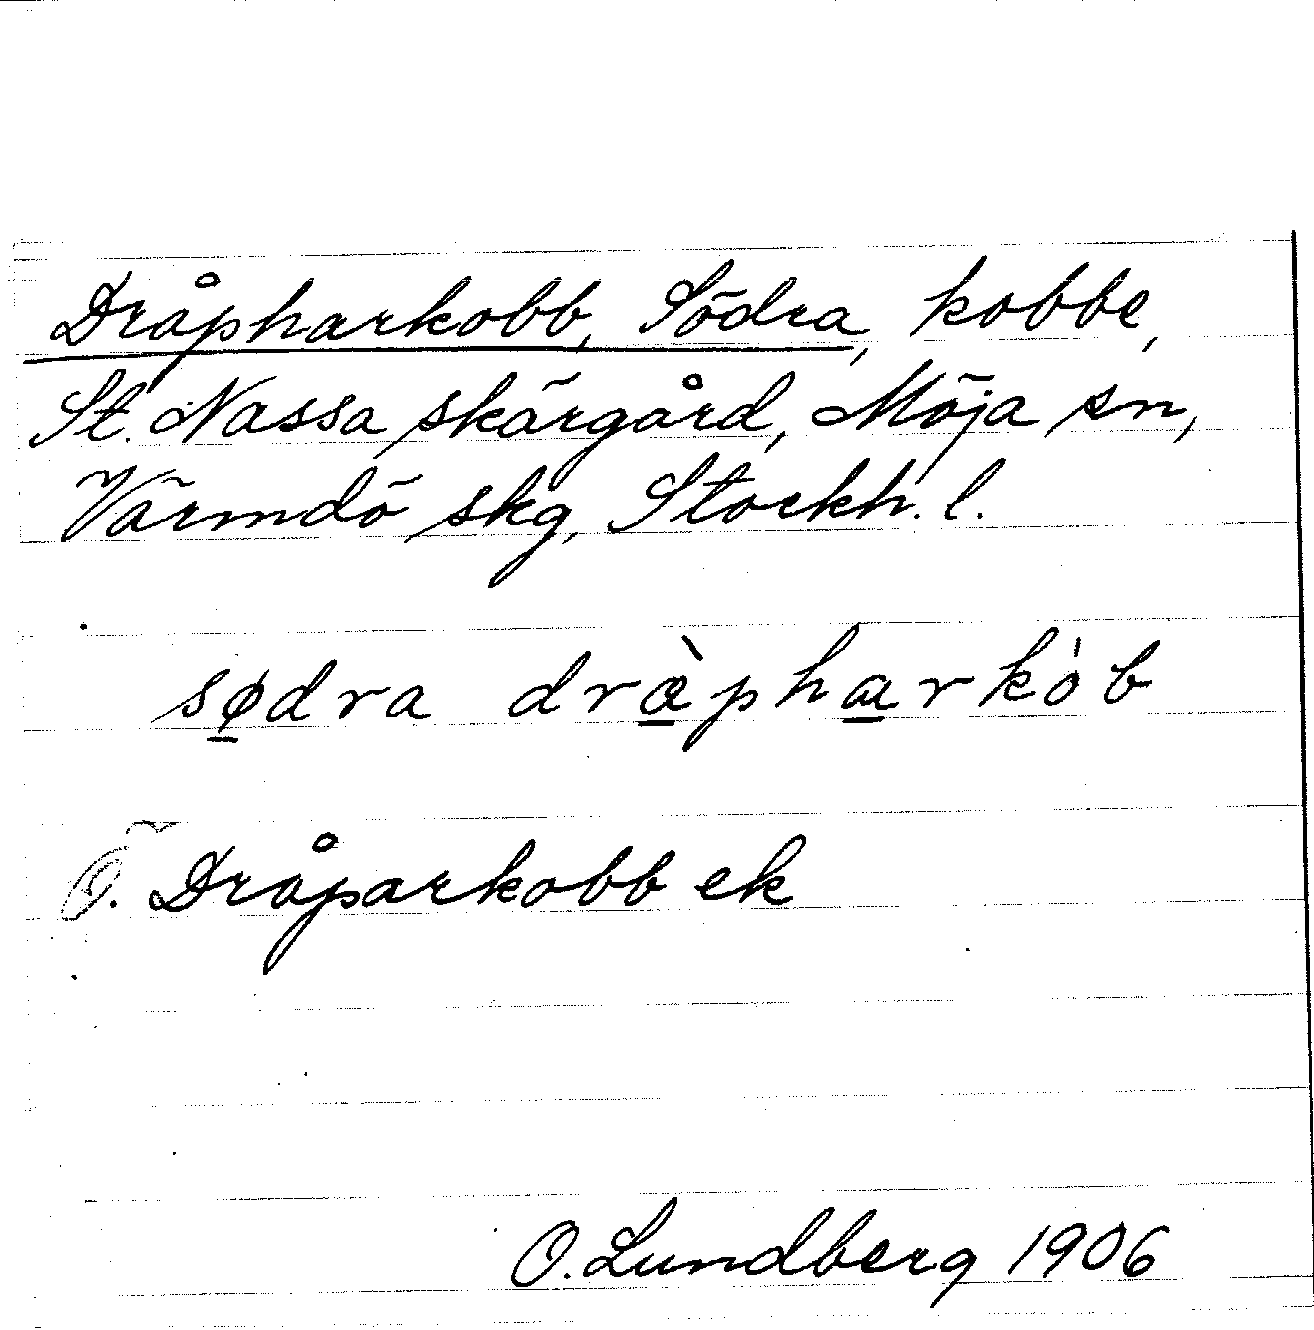 Dråpharkobb, Södra, kobbe,
St. Nassa skärgård, Möja sn,
Värmdö skg, Stockh. l.
sødra dràpharkób
Ö. Dråparkobb ek
O. Lundberg 1906